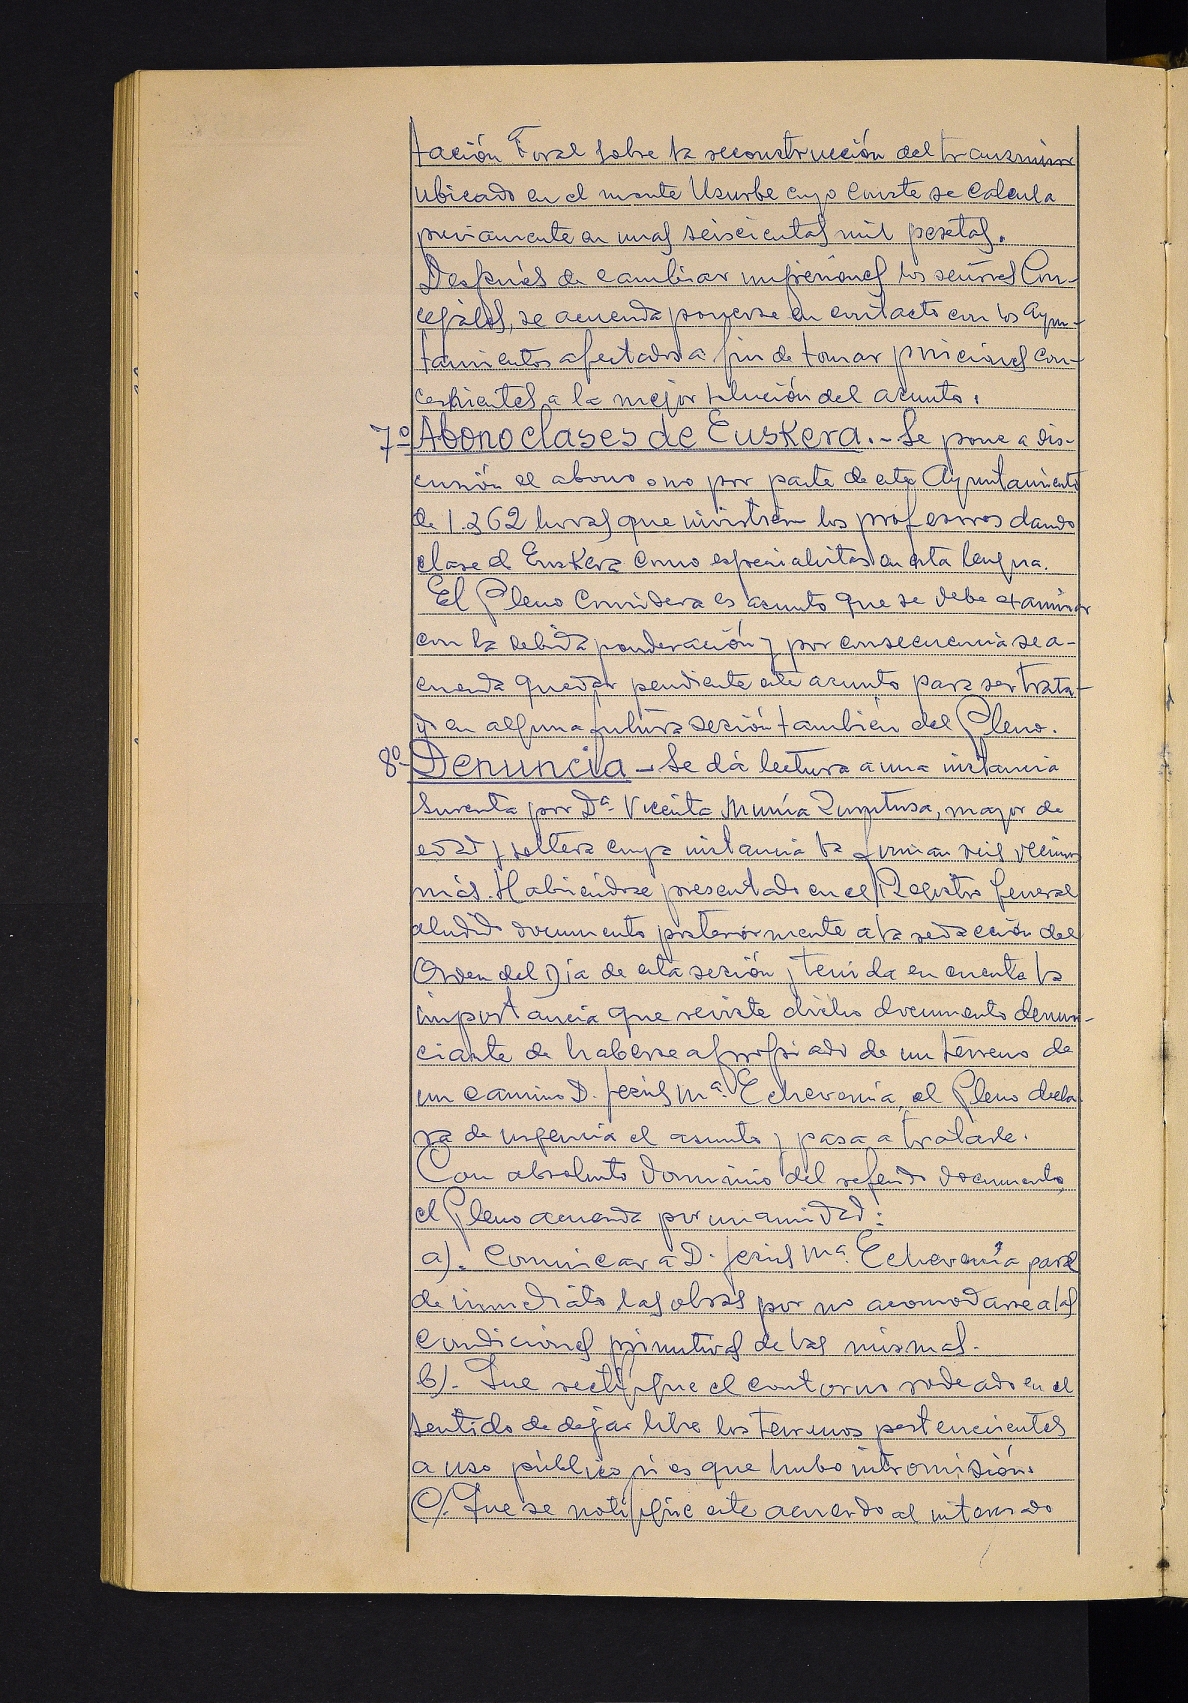 tación Foral sobre la reconstrucción del transmisor
ubicado en el monte Usurbe cuyo coste se calcula
previamente en unas seiscientas mil pesetas.
Después de cambiar impresiones los señores Con-
cejales, se acuerda ponerse en contacto con los Ayun-
tamientos afectados a fin de tomar posiciones con-
cernientes a la mejor solución del asunto.
7º Abono clases de Euskera.- Se pone a dis-
cusión el abono o no por parte de este Ayuntamiento
de 1.362 horas que invirtieron los profesores dando
clase de Euskera como especialistas en esta lengua.
El Pleno considera es asunto que se debe examinar
con la debida ponderación y por consecuencia se a-
cuerda quedar pendiente este asunto para ser trata-
do en alguna futura sesión también del Pleno.
8º Denuncia - Se dá lectura a una instancia
suscrita por Dª. Vicenta Munía, mayor de
edad y soltera cuya instancia la firman seis vecinos
más. Habiéndose presentado en el Registro General
aludido documento posteriormente a la redacción del
Orden del Día de esta sesión y tenida en cuenta la
importancia que reviste dicho documento denun-
ciante de haberse apropiado de un terreno de
un camino D. Jesús Mª. Echeverría, el Pleno decla
ra de urgencia el asunto y pasa a tratarle.
Con absoluto dominio del referido documento,
el Pleno acuerda por unanimidad:
a). Comunicar a D. Jesús Mª. Echeverría pare
de inmediato las obras por no acomodarse a las
condiciones primitivas de las mismas.
b). Que rectifique el contorno rodeado en el
sentido de dejar libre los terrenos pertenecientes
a uso público si es que hubo intromisión.
C). Que se notifique este acuerdo al interesado